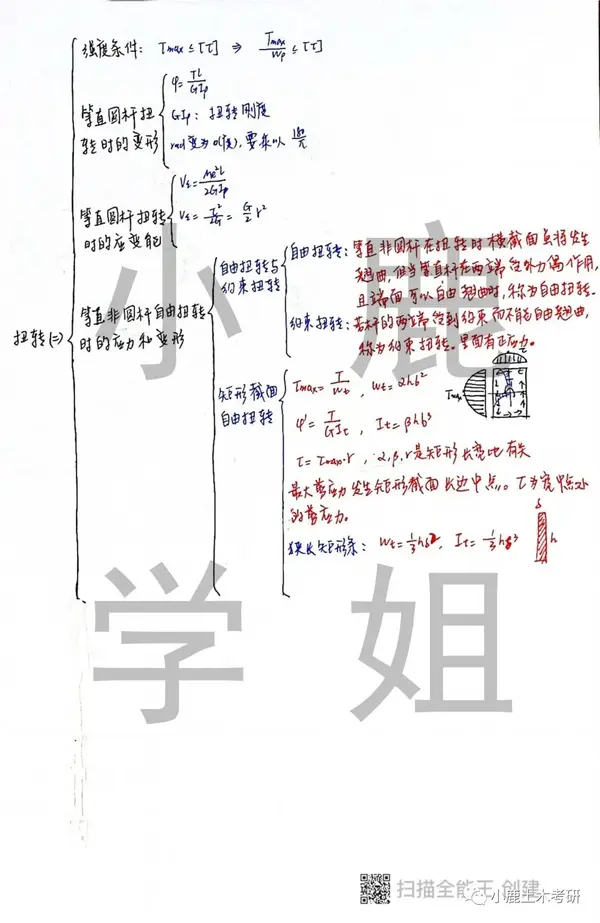 扭转(二)
强度条件: τmax ≤ [τ] ⇒ Tmax/Wp ≤ [τ]
等直圆杆扭
转时的变形
φ = Tl/GIp
GIp: 扭转刚度
rad变为°(度), 要乘以 180/π
等直圆杆扭转
时的应变能
Vε = Me²l/2GIp
vε = τ²/2G = G/2 r²
等直非圆杆自由扭转
时的应力和变形
自由扭转与
约束扭转
自由扭转: 等直非圆杆在扭转时横截面虽将发生
翘曲, 但当等直杆在两端受外力偶作用,
且端面可以自由翘曲时, 称为自由扭转.
约束扭转: 若杆的两端受到约束而不能自由翘曲,
称为约束扭转。里面有正应力。
矩形截面
自由扭转
τmax = T/Wt , Wt = αhb²
φ' = T/GIt , It = βhb³
τ = τmax·r , α,β,r是矩形长宽比有关
最大剪应力发生矩形截面长边中点。τ为宽中点处
的剪应力。
τ
τmax
狭长矩形条: Wt = 1/3 hδ², It = 1/3 hδ³
δ
h
小鹿
学姐
扫描全能王 创建
小鹿土木考研